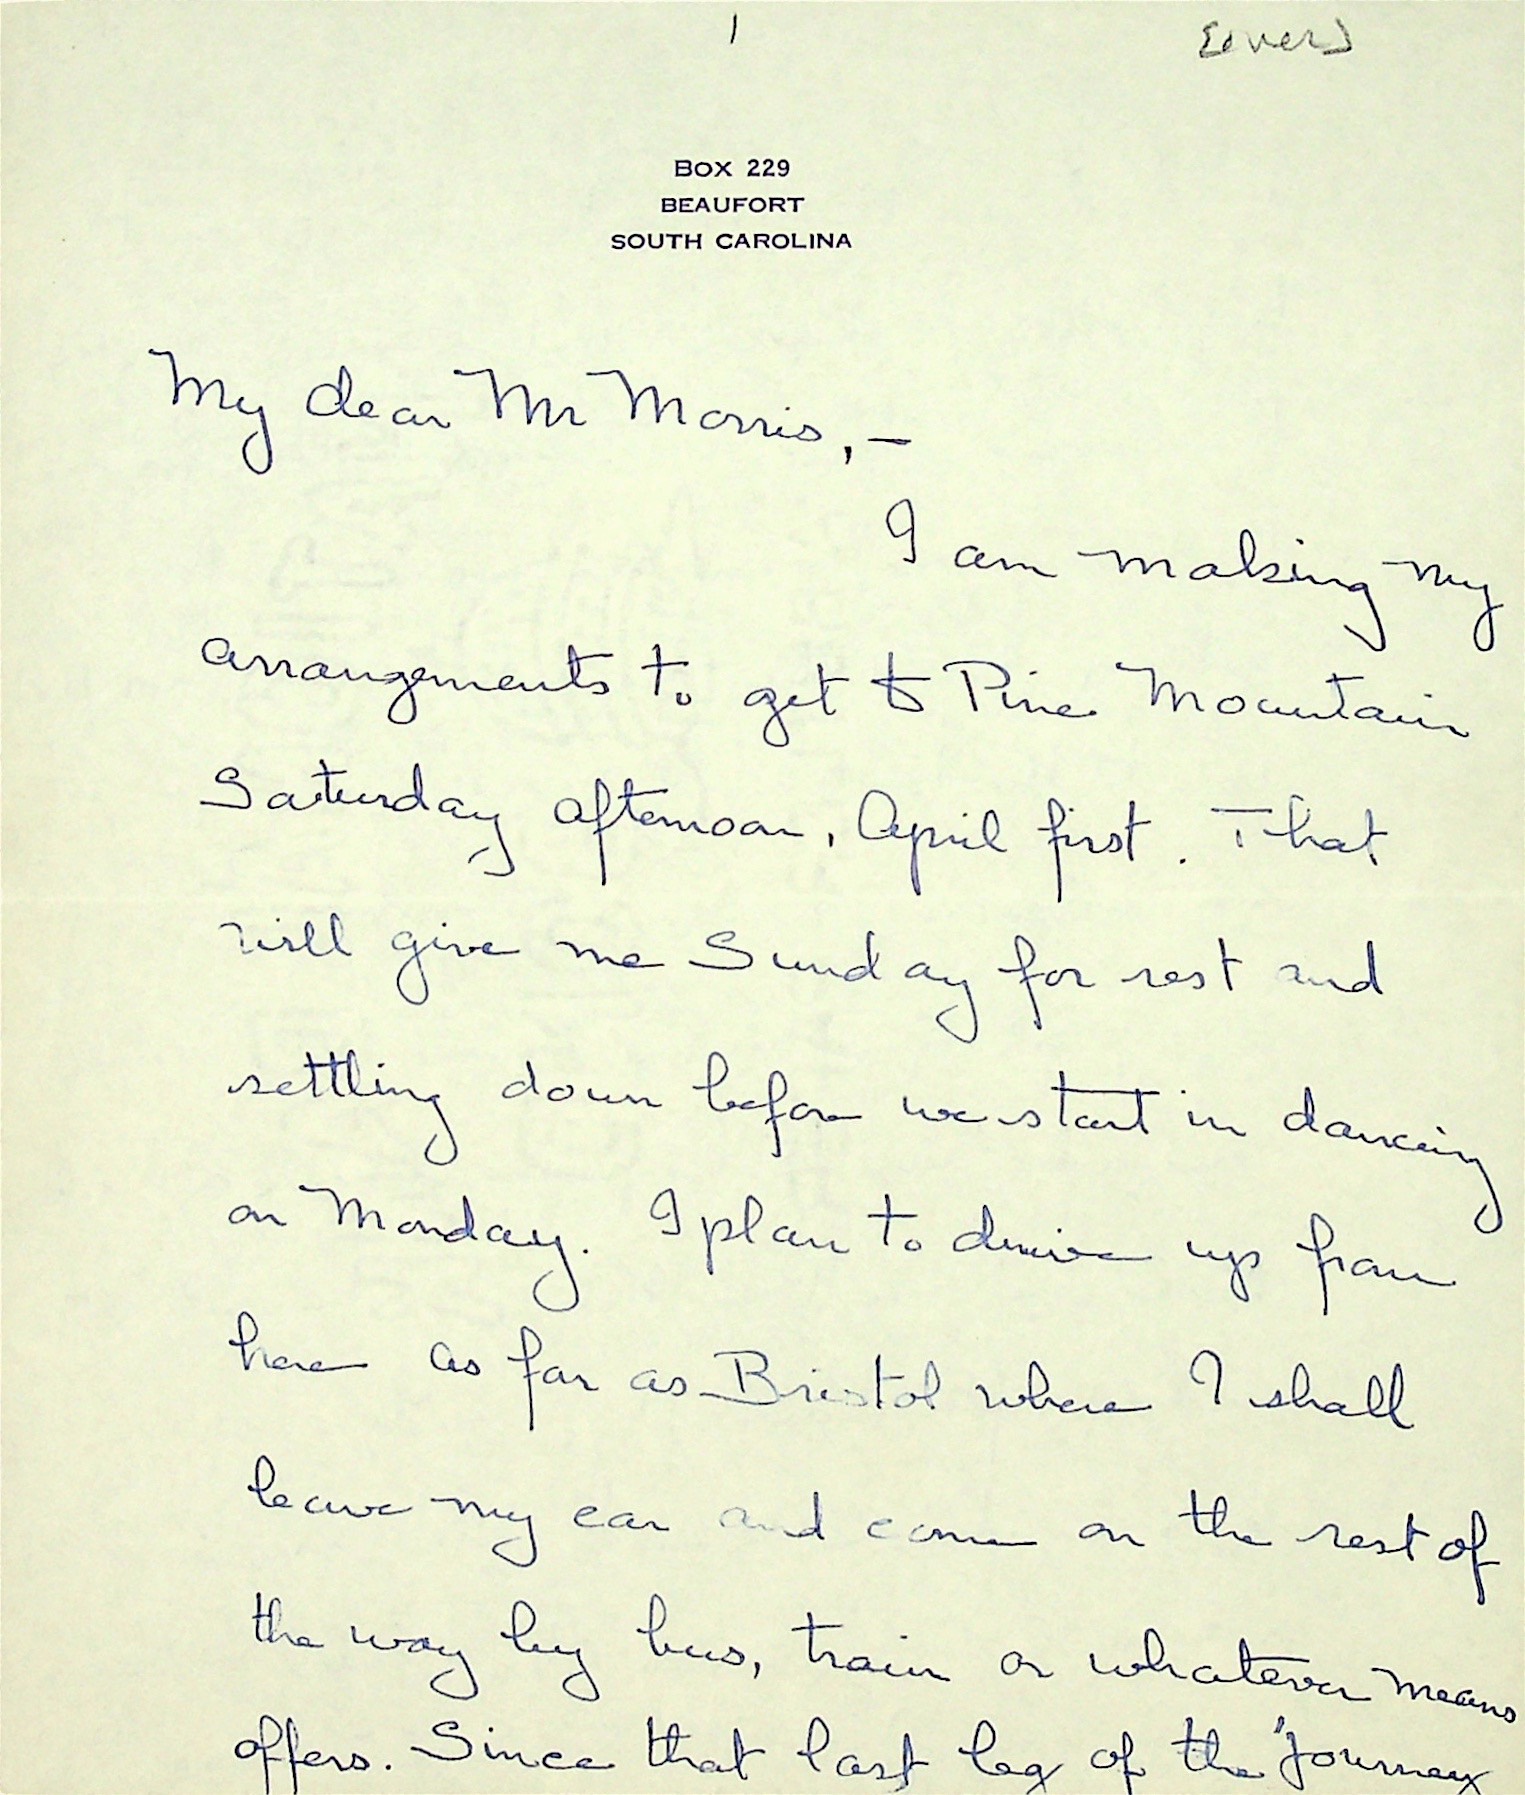 1
[over]
BOX 229
BEAUFORT
SOUTH CAROLINA
My dear Mr Morris, –
I am making my
arrangements to get to Pine Mountain
Saturday afternoon, April first. That
will give me Sunday for rest and
settling down before we start in dancing
on Monday. I plan to drive up from
here as far as Bristol where I shall
leave my car and come on the rest of
the way by bus, train or whatever means
offers. Since that last leg of the journey